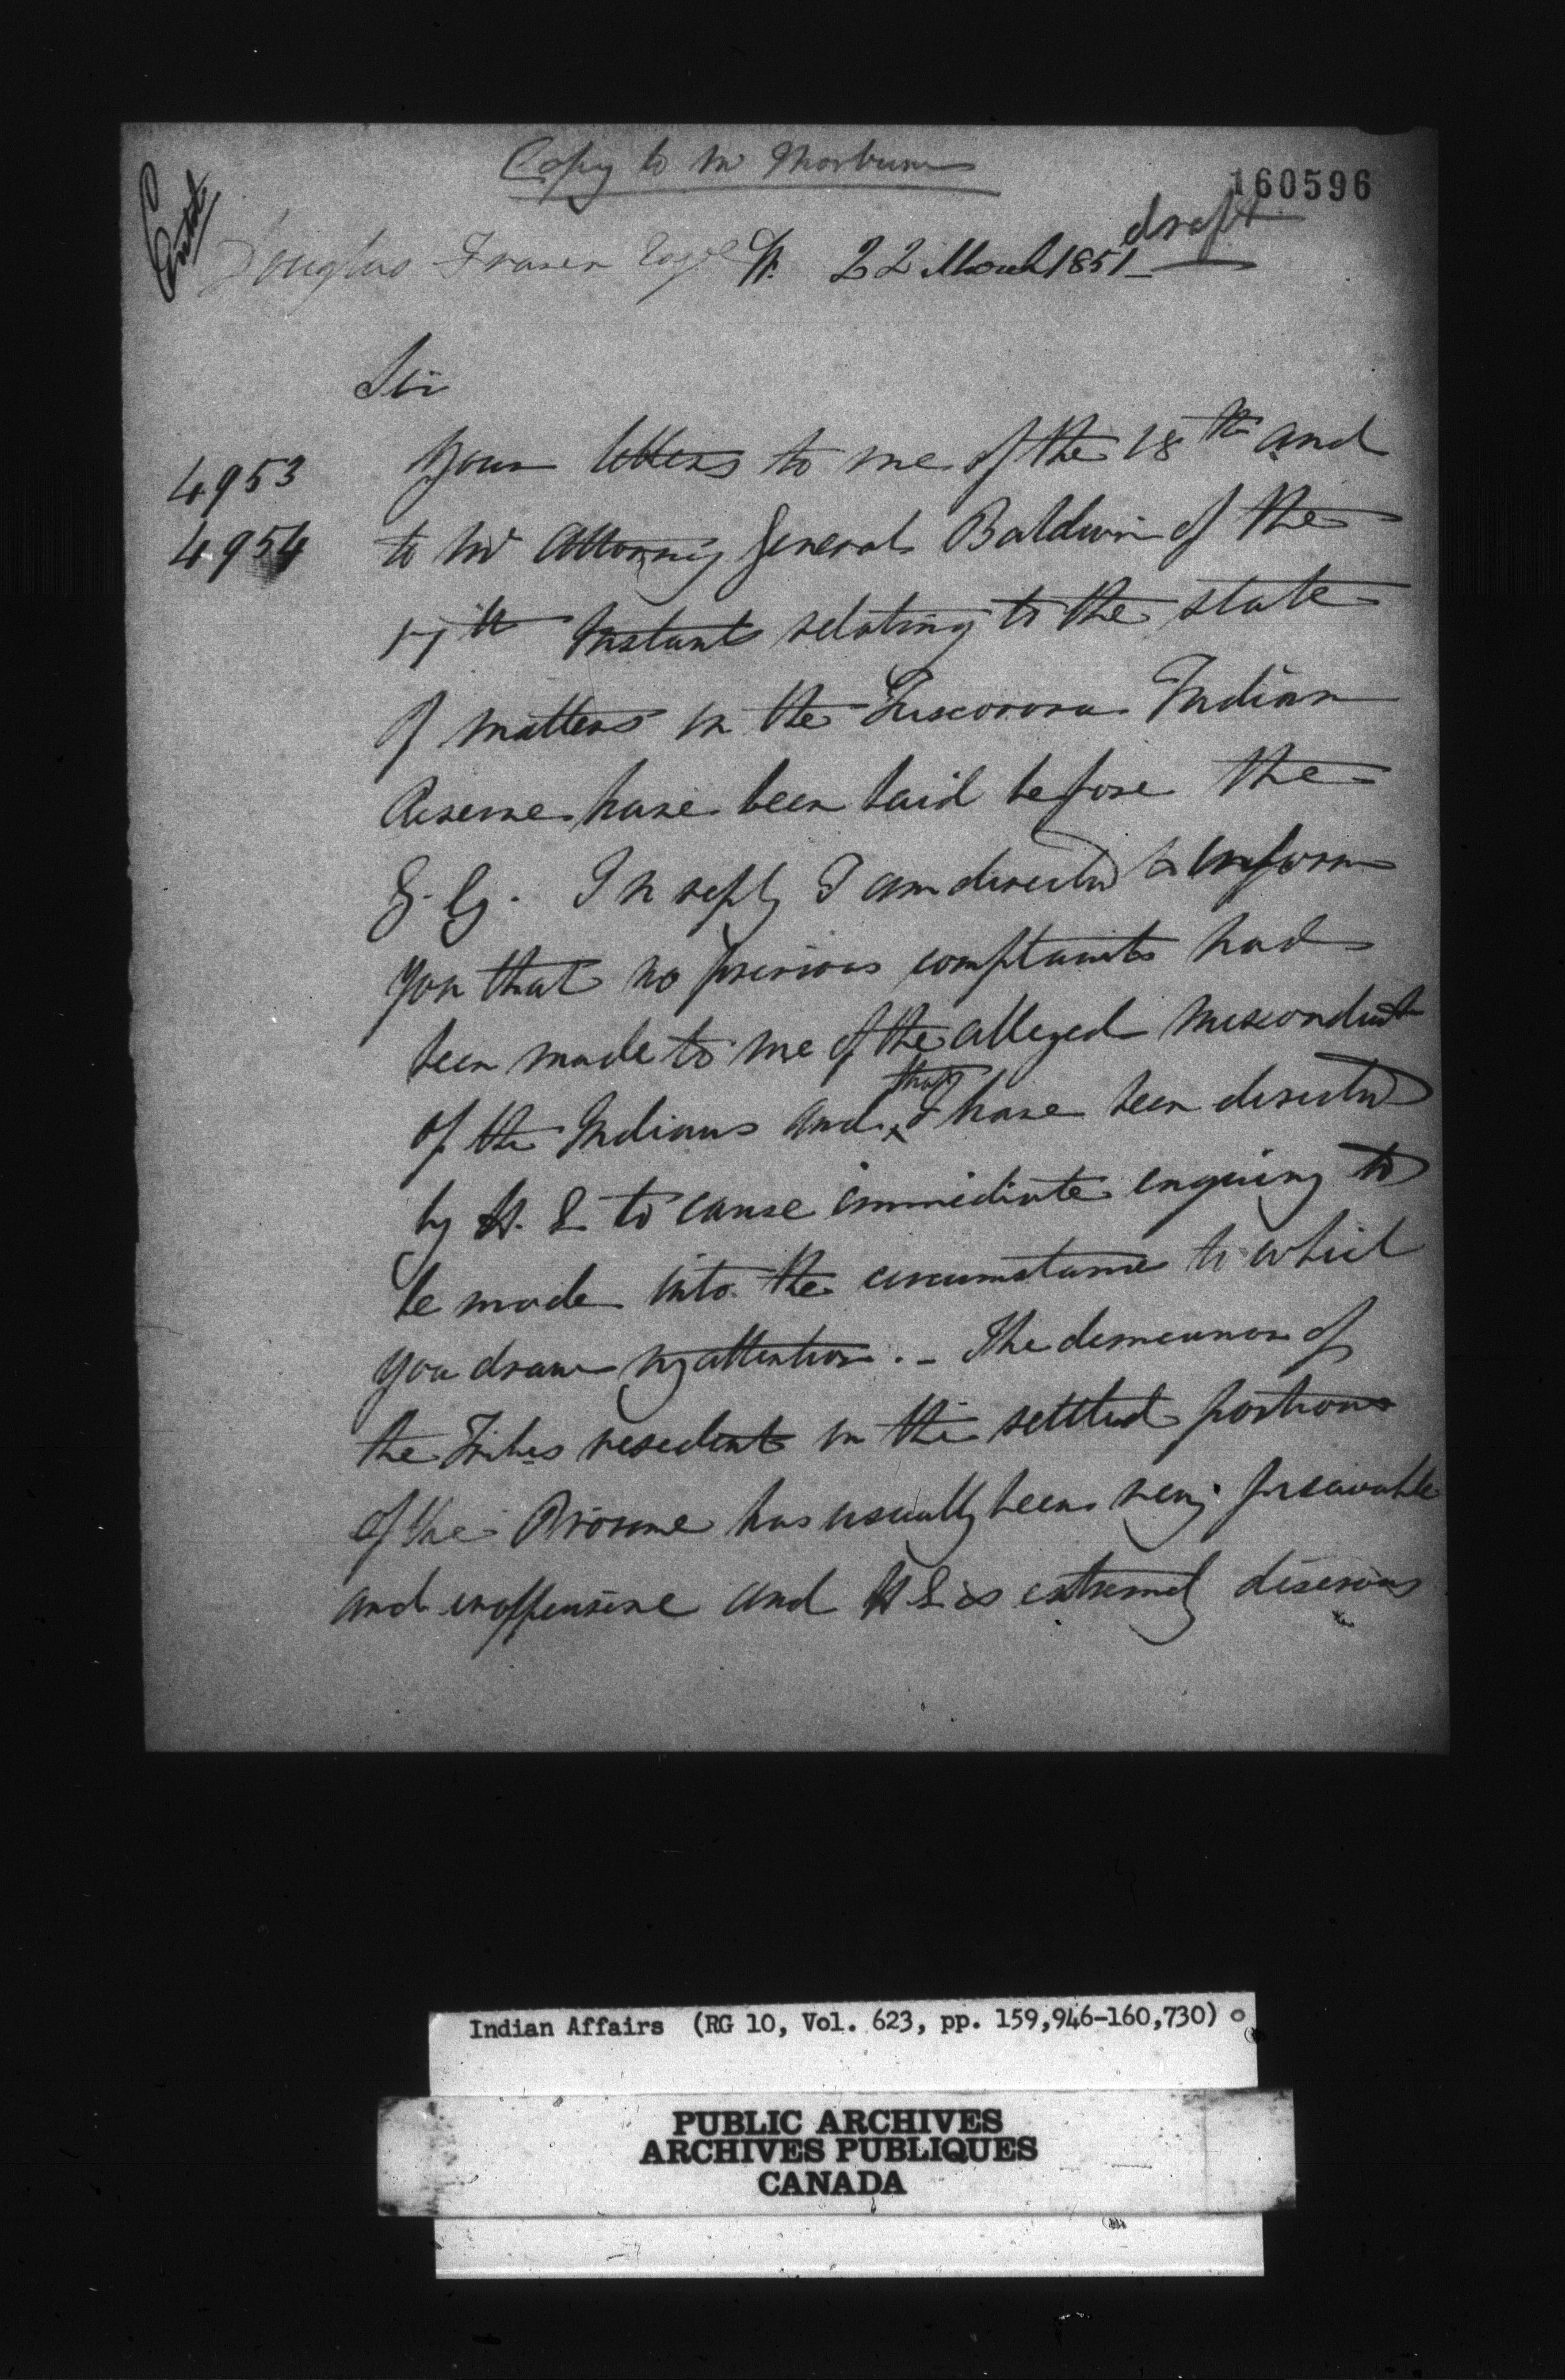 Copy to Mr Thorburn
160596
Entd
draft
Douglas Fraser Esqre 22 March 1851
Sir
4953
Your letters to me of the 18th and
4954
to Mr Attorney General Baldwin of the
17th Instant relating to the state
of matters in the Tuscorora Indian
Reserve have been laid before the
G. G. In reply I am directed to inform
you that no previous complaints had
been made to me of the alleged misconduct
of the Indians and that I have been directed
by H. E to cause immediate enquiry to
be made into the circumstance to which
you draw my attention. - The demeanor of
the Tribes resident in the settled portions
of the Province has usually been very peaceable
and inoffensive and H E is extremely desirous
Indian Affairs (RG 10, Vol. 623, pp. 159,946-160,730)
PUBLIC ARCHIVES
ARCHIVES PUBLIQUES
CANADA